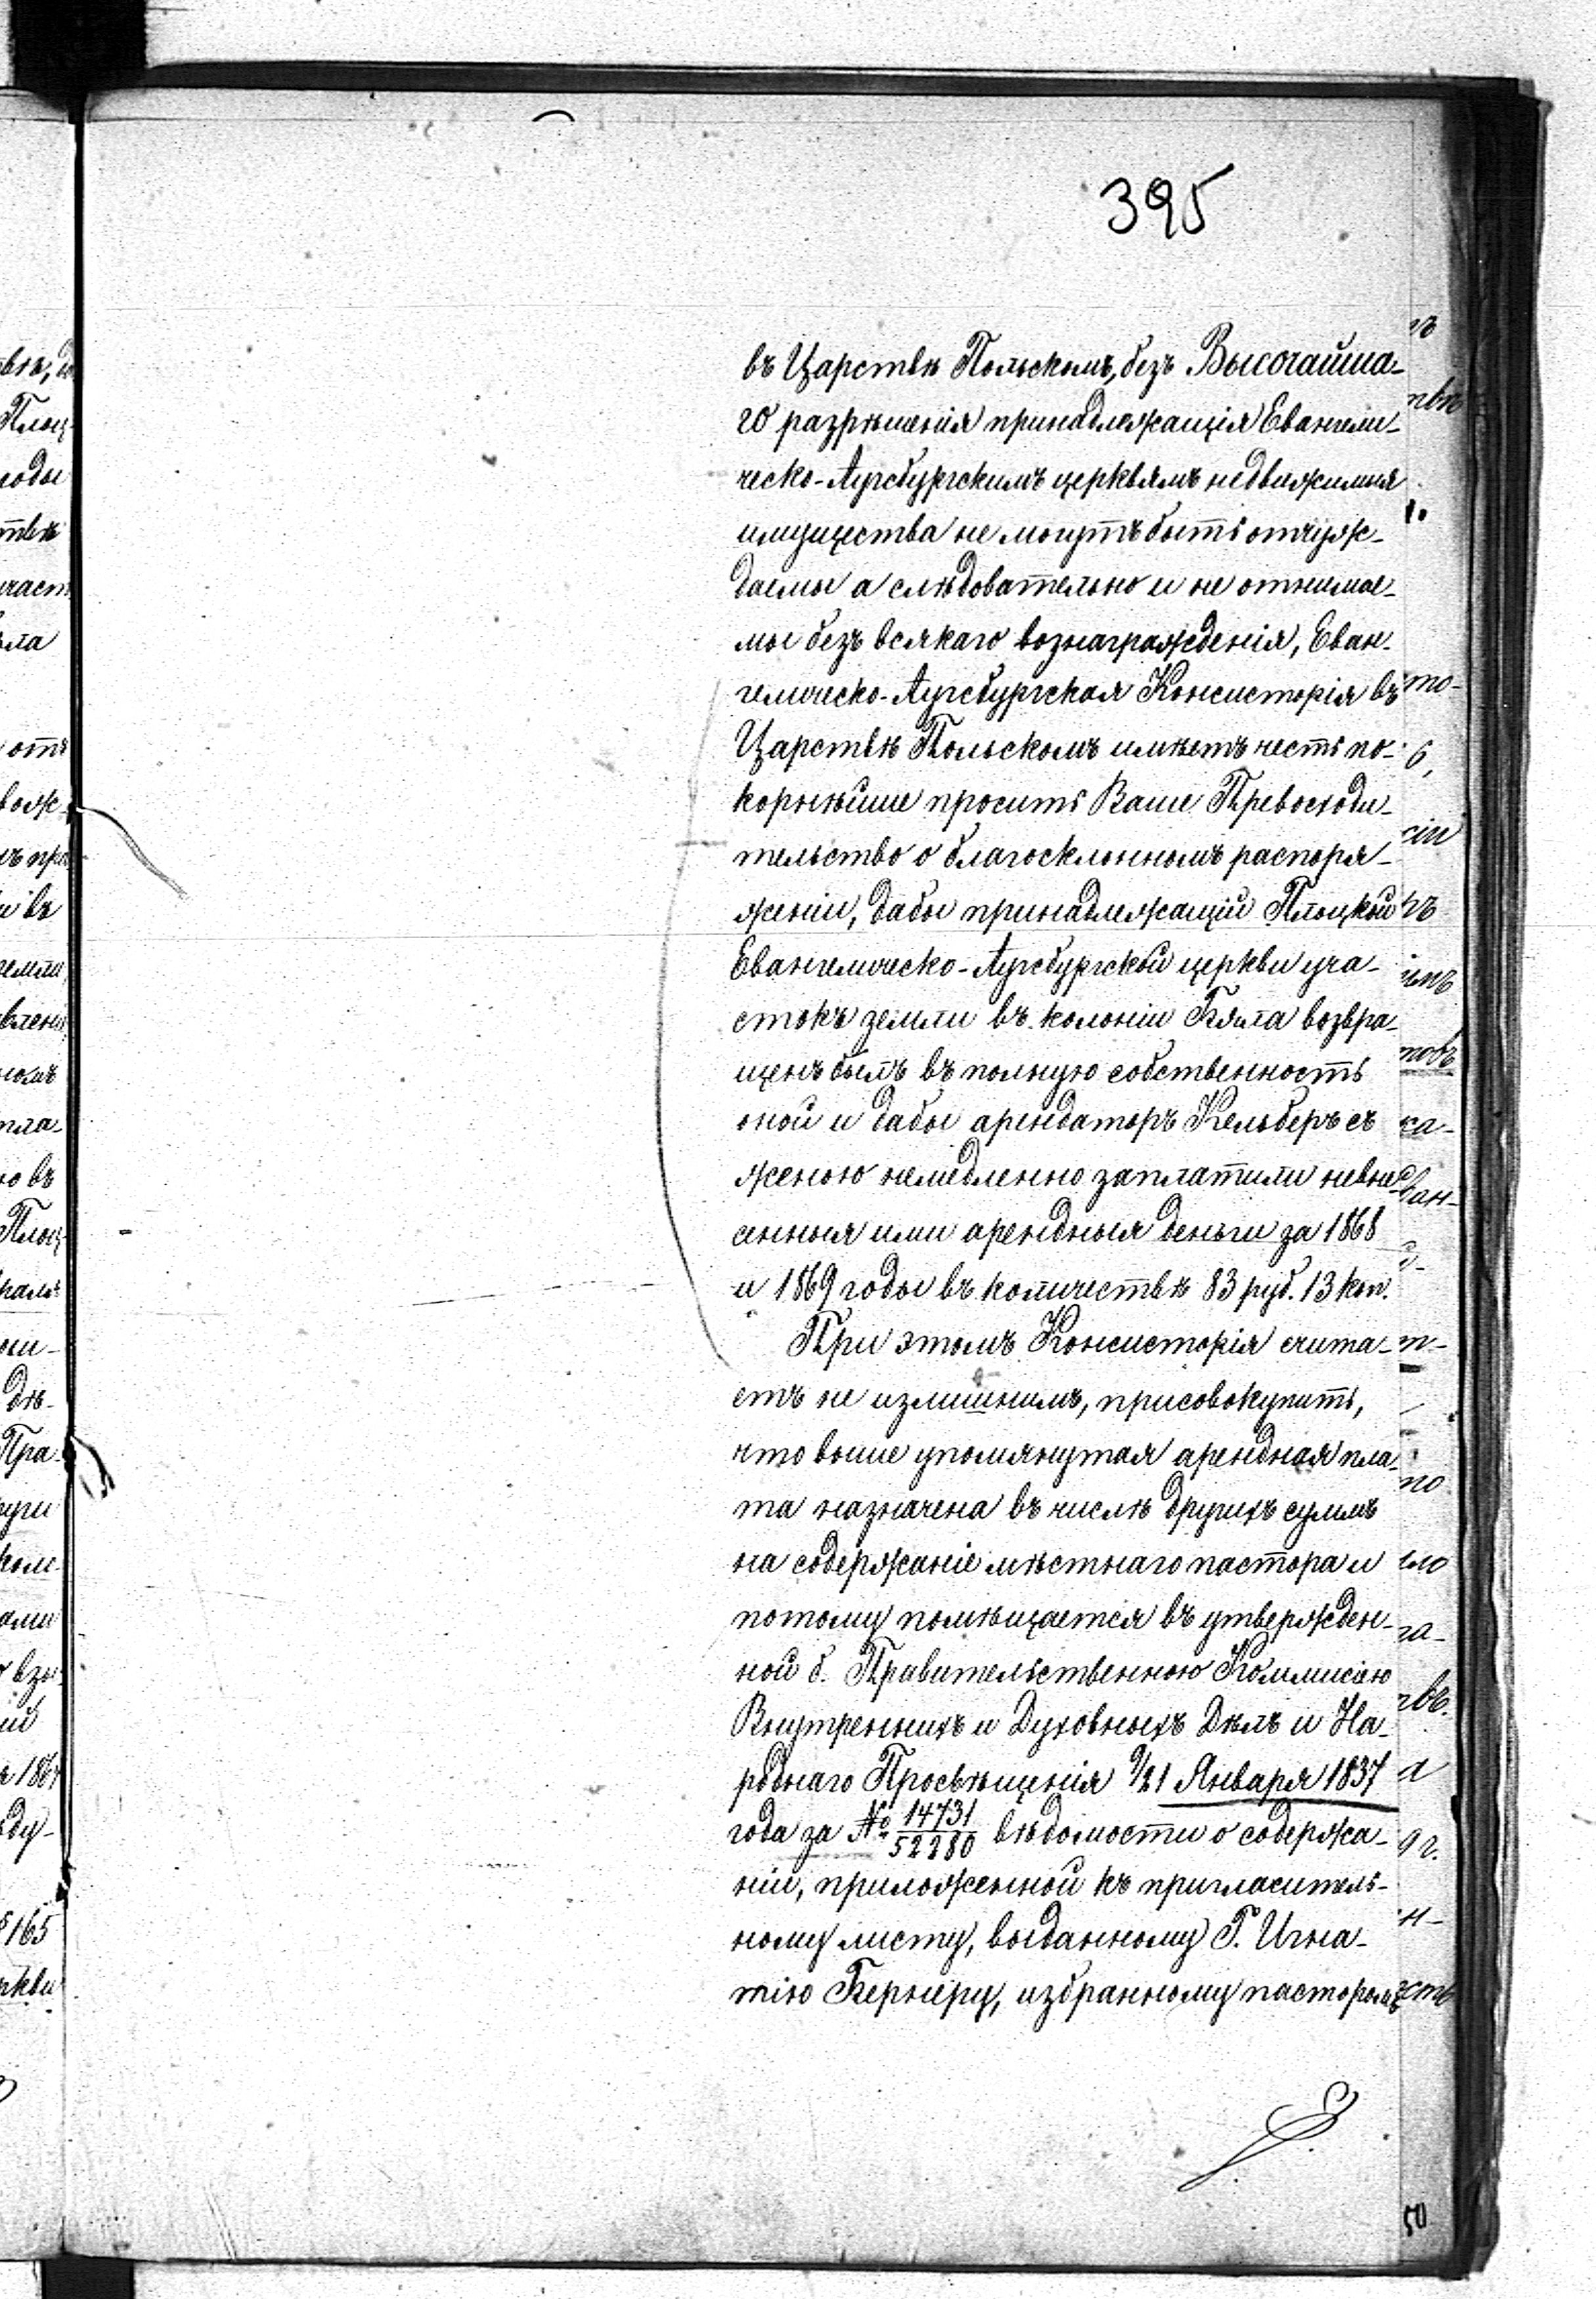 395
въ Царствѣ Польскомъ, безъ Высочайша-
го разрѣшенія принадлежащія Евангели-
ческо-Аугсбургскимъ церквямъ недвижимыя
имущества не могутъ быть отчуж-
даемы а слѣдовательно и не отнимае-
мы безъ всякаго вознагражденія, Еван-
гелическо-Аугсбургская Консисторія въ
Царствѣ Польскомъ имѣетъ честь по-
корнѣйше просить Ваше Превосходи-
тельство о благосклонномъ распоря-
женіи, дабы принадлежащій Плоцкой
Евангелическо-Аугсбургской церкви уча-
стокъ земли въ колоніи Бяла возвра-
щенъ былъ въ полную собственность
оной и дабы арендаторъ Кельберъ съ
женою немедленно заплатили невне-
сенныя ими арендныя деньги за 1868
и 1869 годы въ количествѣ 83 руб. 13 коп.
При этомъ Консисторія счита-
етъ не излишнимъ, присовокупить,
что выше упомянутая арендная пла-
та назначена въ числѣ другихъ суммъ
на содержаніе мѣстнаго пастора и
потому помѣщается въ утвержден-
ной б. Правительственною Коммисіею
Внутреннихъ и Духовныхъ Дѣлъ и На-
роднаго Просвѣщенія 9/21 Января 1837
года за № 14731/52280 вѣдомости о содержа-
ніи, приложенной къ пригласитель-
ному листу, выданному Г. Игна-
тію Бернеру, избранному пасторомъ